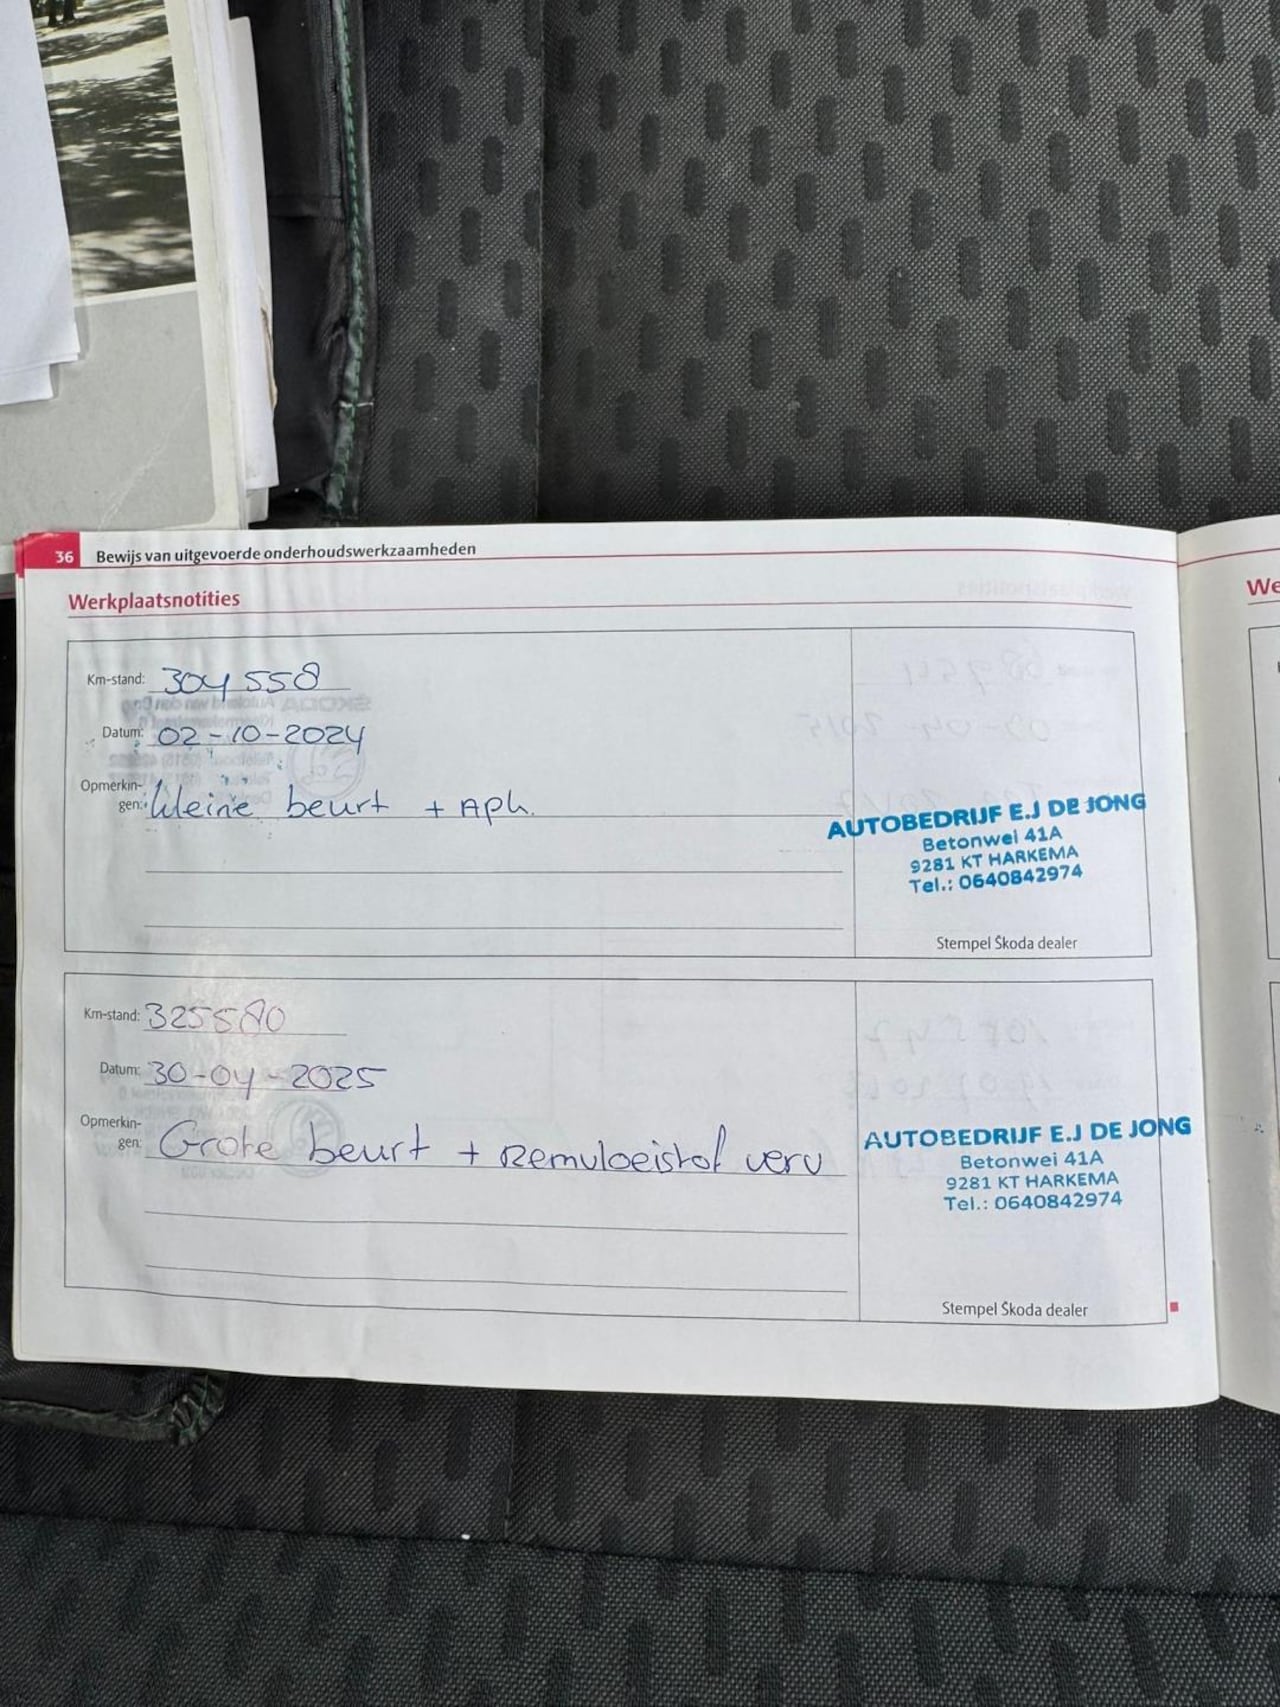 36 Bewijs van uitgevoerde onderhoudswerkzaamheden
Werkplaatsnotities
We
Km-stand: 304558
Datum: 02-10-2024
Opmerkin-
gen: kleine beurt + APK.
AUTOBEDRIJF E.J DE JONG
Betonwei 41A
9281 KT HARKEMA
Tel.: 0640842974
Stempel Škoda dealer
Km-stand: 325580
Datum: 30-04-2025
Opmerkin-
gen: Grote beurt + Remvloeistof verv
AUTOBEDRIJF E.J DE JONG
Betonwei 41A
9281 KT HARKEMA
Tel.: 0640842974
Stempel Škoda dealer